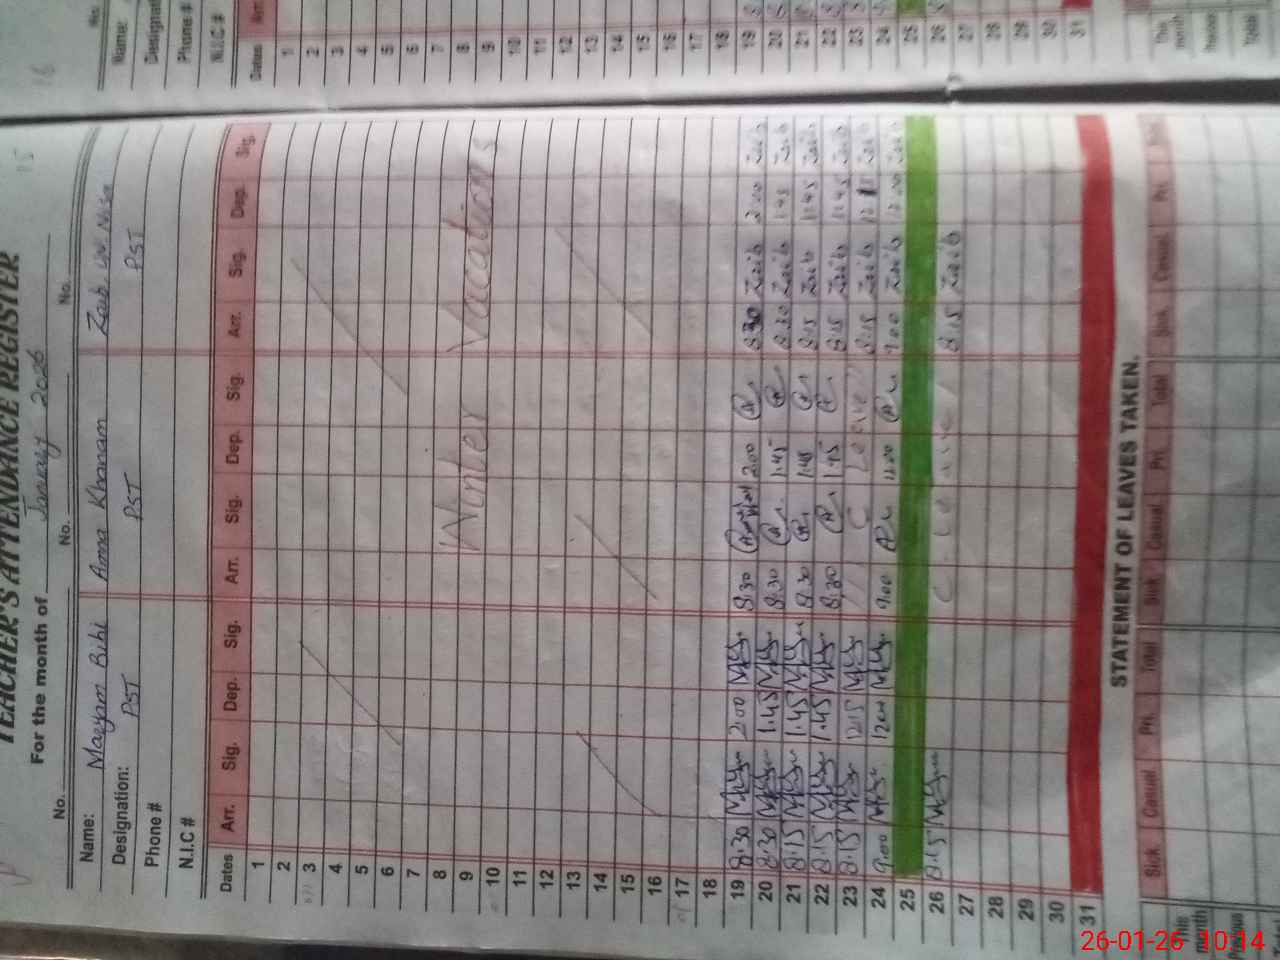 TEACHER'S ATTENDANCE REGISTER
For the month of January 2026
No. No. No.
Name: Maryam Bibi Amna Khanam Zaib un Nisa
Designation: PST PST PST
Phone #
N.I.C #
Dates Arr. Sig. Dep. Sig. Arr. Sig. Dep. Sig. Arr. Sig. Dep. Sig.
1
2
3
4
5
6
7
8
9 Winter Vacations
10
11
12
13
14
15
16
17
18
19 8:30 2:00 8:30 2:00 8:30 Zaib 2:00 Zaib
20 8:30 1:45 8:30 1:45 8:30 Zaib 1:45 Zaib
21 8:15 1:45 8:30 1:45 8:15 Zaib 11:45 Zaib
22 8:15 1:45 8:30 1:45 8:15 Zaib 11:45 Zaib
23 8:15 12:15 C Leave 8:15 Zaib Zaib
24 9:00 12:00 9:00 12:00 9:00 Zaib 12:00 Zaib
25
26 8:15 C. Leave 8:15 Zaib
27
28
29
30
31
STATEMENT OF LEAVES TAKEN.
Sick Casual Pri. Total Sick Casual Pri. Total Sick Casual Pri. Total
This month
Previous
Total
No.
Name:
Designation
Phone #
N.I.C #
Dates Arr.
1
2
3
4
5
6
7
8
9
10
11
12
13
14
15
16
17
18
19
20
21
22
23
24
25
26
27
28
29
30
31
This month
Previous
Total
26-01-26 10:14